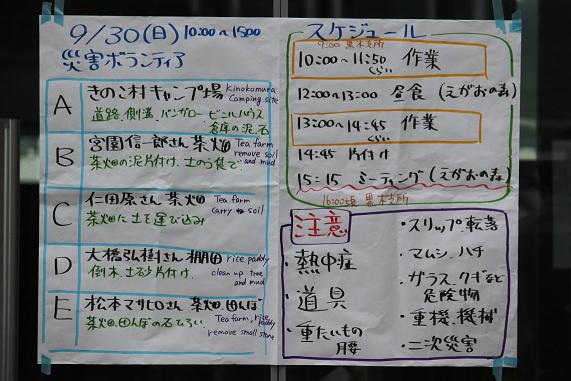 9/30(日) 10:00〜1500
災害ボランティア
A きのこ村キャンプ場 Kinokomura Camping site
道路、側溝、バンガロー、ビニルハウス
倉庫の泥石
B 宮園信一郎さん 茶畑 Tea farm
茶畑の泥片付け、土のう袋で remove soil and mud
C 仁田原さん 茶畑 Tea farm
茶畑に土を運び込み carry soil
D 大橋弘樹さん 棚田 rice paddy
倒木、土砂片付け、 clean up tree and mud
E 松本マサヒロさん 茶畑 田んぼ
茶畑、田んぼの石ひろい Tea farm, rice paddy
remove small stone
スケジュール
9:00 黒木支所
10:00〜11:50 くらい 作業
12:00〜13:00 昼食 (えがおの森)
13:00〜14:45 くらい 作業
14:45 片付け
15:15 ミーティング (えがおの森)
16:00頃 黒木支所
注意
・熱中症
・道具
・重たいもの
腰
・スリップ転落
・マムシ、ハチ
・ガラス、クギなど
危険物
・重機、機械
・二次災害